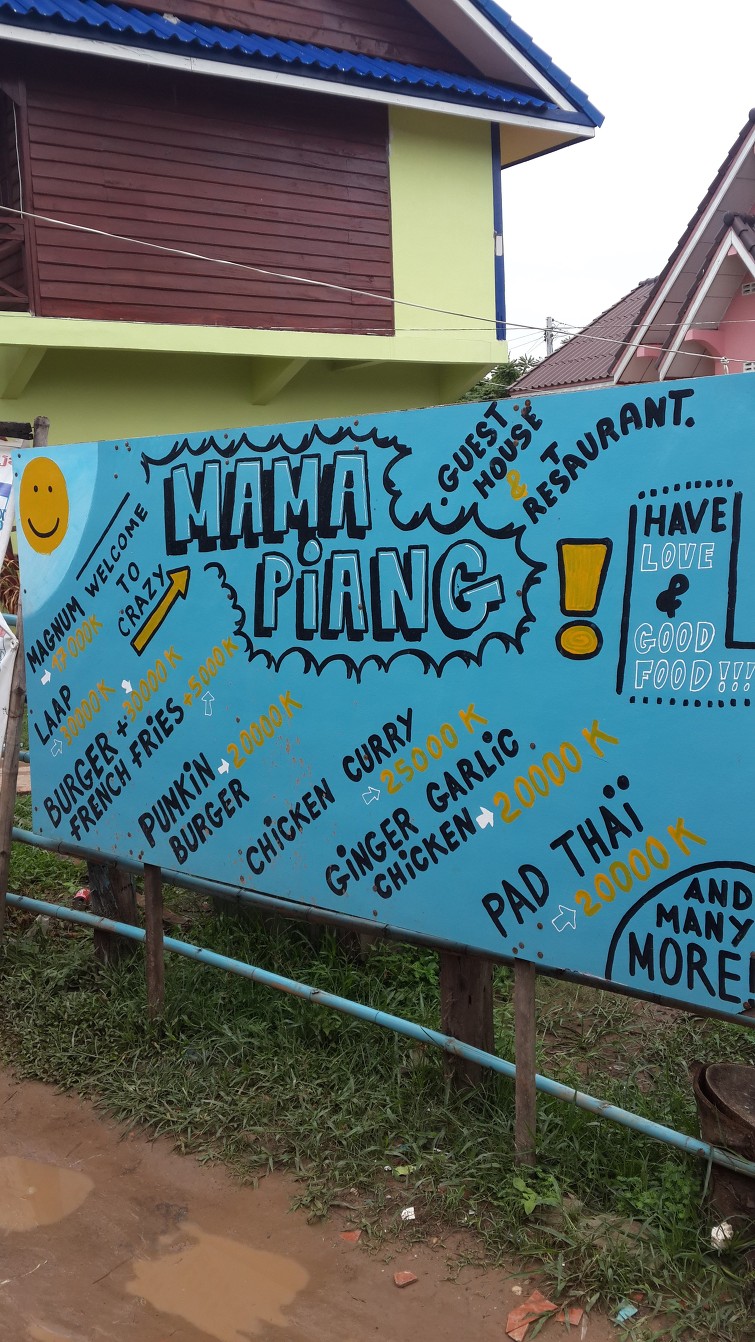 MAMA
PiANG
!
GUEST
HOUSE
&
RESTAURANT.
WELCOME
TO
CRAZY
HAVE
LOVE
&
GOOD
FOOD!!!
MAGNUM
17000K
LAAP
30000K
BURGER +30000K
FRENCH FRIES +5000K
PUMKiN 20000K
BURGER
CHiCKEN CURRY
25000K
GiNGER GARLiC
CHiCKEN 20000 K
PAD THAÏ
20000 K
AND
MANY
MORE!